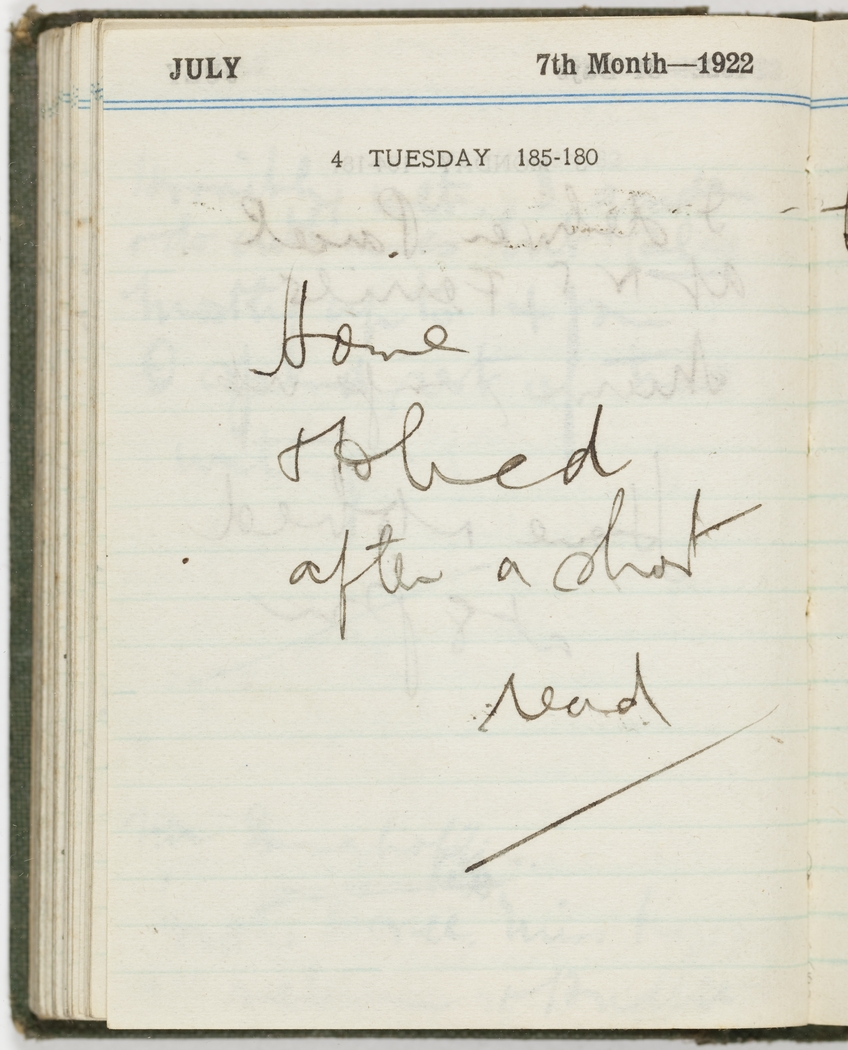 JULY 7th Month—1922
4 TUESDAY 185-180
Home
& to bed
after a short
read